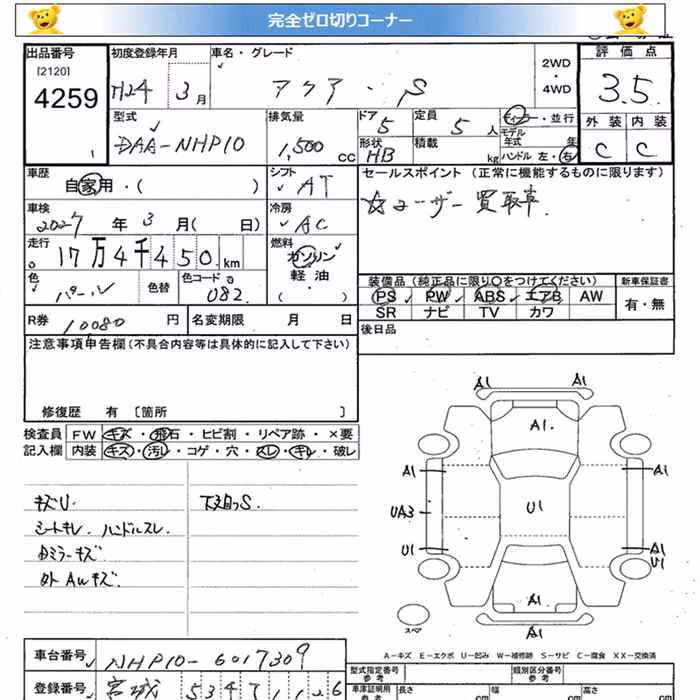 完全ゼロ切りコーナー
出品番号 初度登録年月 車名・グレード 2WD・4WD 評価点
[2120]
4259
H24 3月 アクア・S 3.5
型式 排気量 ドア 定員 ディーラー・並行 外装 内装
DAA-NHP10 1,500cc 5 5人 モデル年式 年 C C
形状 積載 ハンドル 左・右
HB kg
車歴 シフト セールスポイント (正常に機能するものに限ります)
自家用・( ) AT ☆ユーザー買取車
車検 冷房
2027年3月(日) AC
走行 燃料
17万4千450km ガソリン 軽油 ( )
色 色替 色コード 装備品 (純正品に限り〇をつけてください) 新車保証書
パール 082 PS PW ABS エアB AW 有・無
SR ナビ TV カワ
R券 10080円 名変期限 月 日 後日品
注意事項申告欄(不具合内容等は具体的に記入して下さい)
修復歴 有 〔箇所 〕
検査員 FW キズ・飛石・ヒビ割・リペア跡・×要
記入欄 内装 キズ・汚レ・コゲ・穴・スレ・キレ・破レ
キズU. 下廻っS.
シートキレ. ハンドルスレ.
ミラーキズ
外AWキズ.
A1 A1
A1.
A1 A1
UA3 U1
U1 A1
U1
A1
A1
スペア
A-キズ E-エクボ U-凹み W-補修跡 S-サビ C-腐食 XX-交換済
車台番号 NHP10-6017309
登録番号 宮城
型式指定番号 参考 類別区分番号 参考
車庫証明用 参考 長さ cm 幅 cm 高さ cm